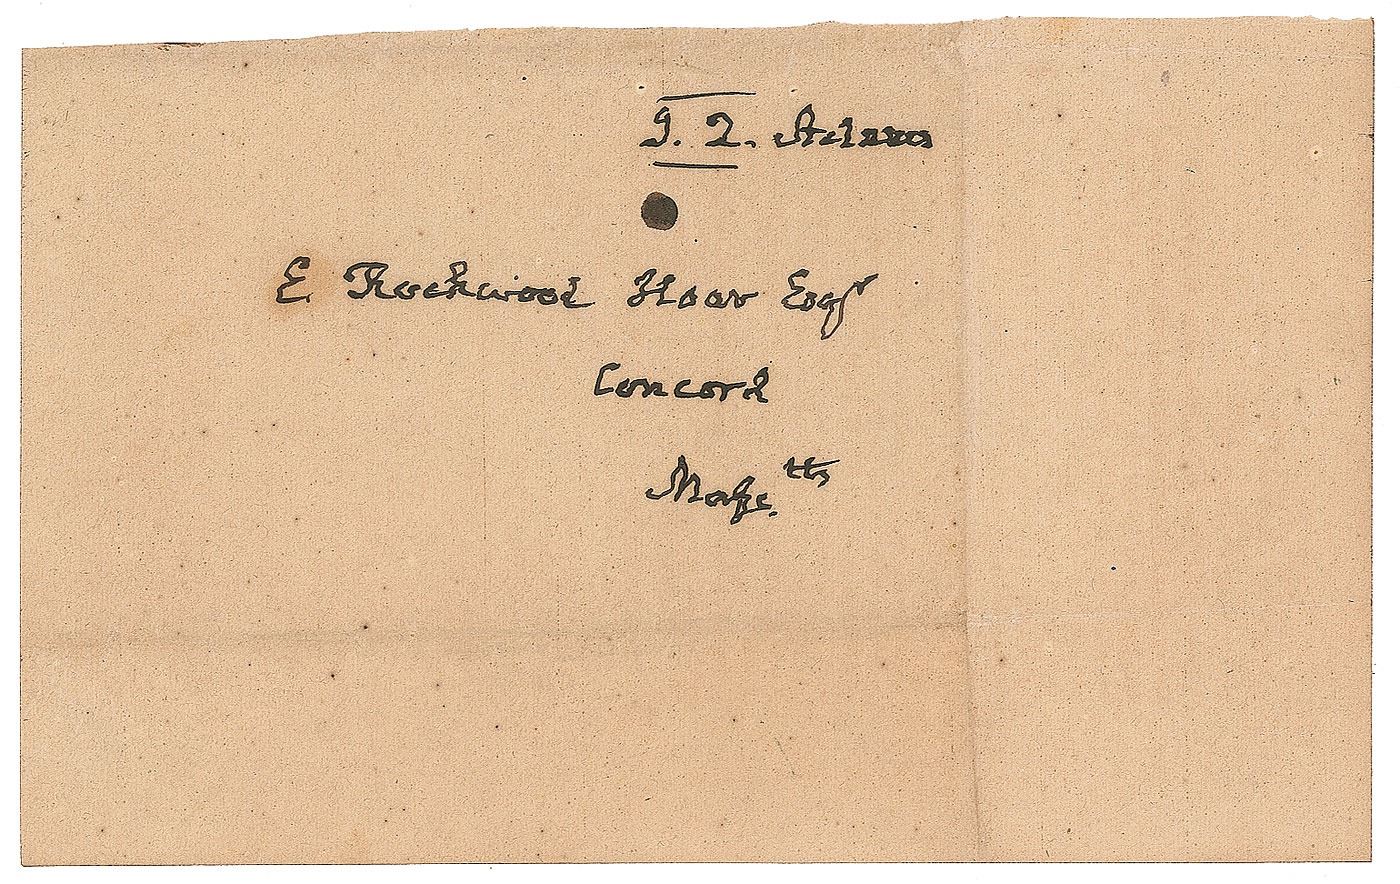 J. Q. Adams
E Rockwood Hoar Esqr
Concord
Massc.tts